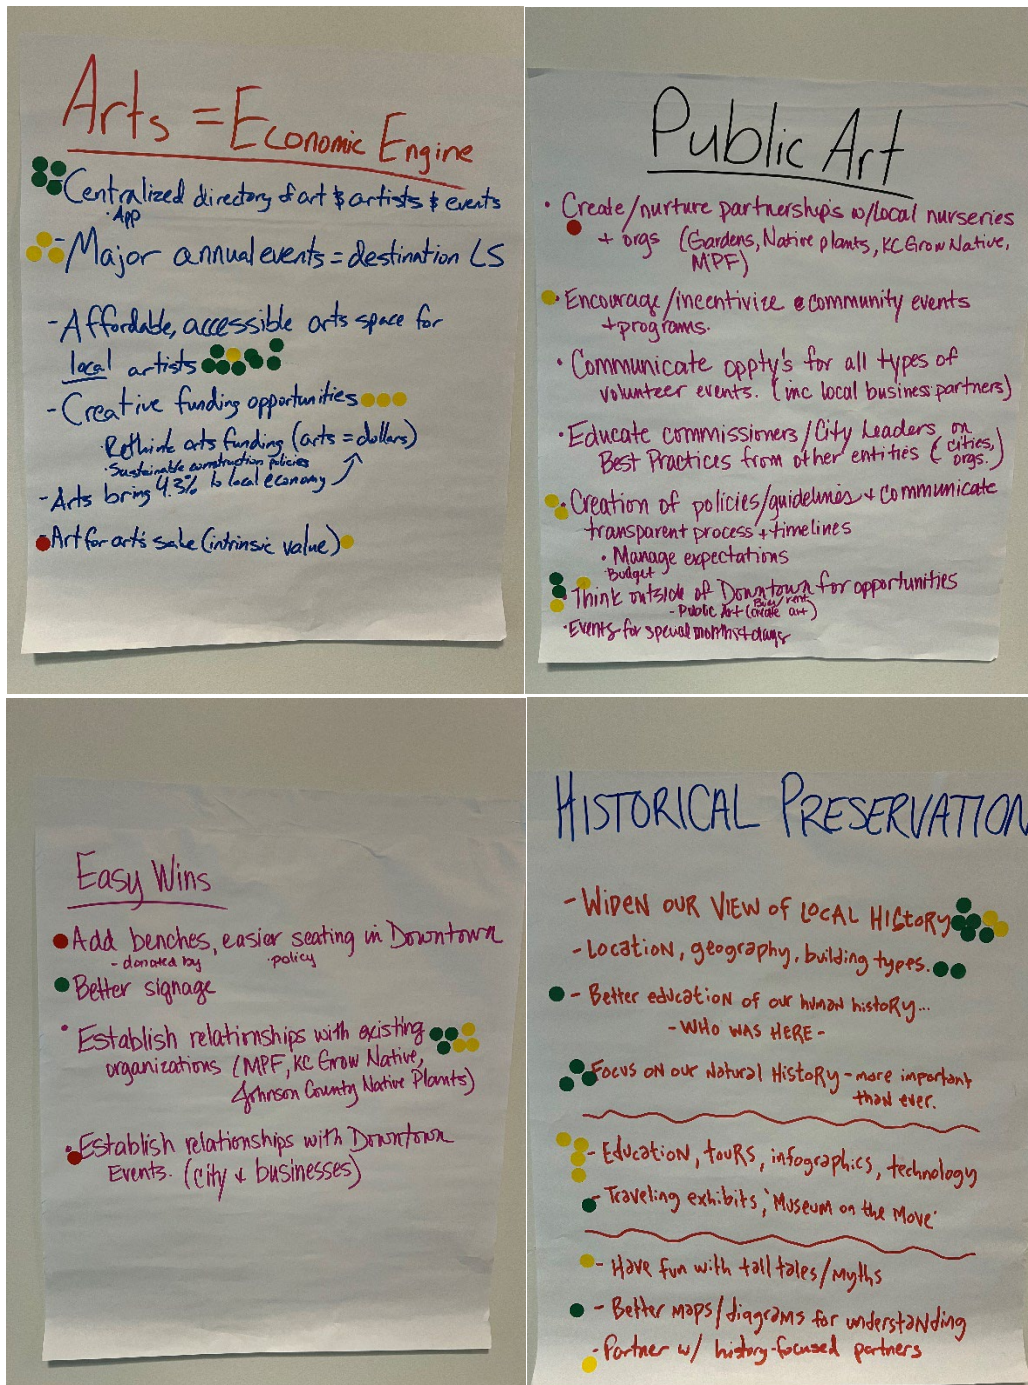 Arts = Economic Engine
- Centralized directory of art & artists & events
· App
- Major annual events = destination LS
- Affordable, accessible arts space for
local artists
- Creative funding opportunities
· Rethink arts funding (arts = dollars)
· Sustainable construction policies
- Arts bring 4.3% to local economy
· Art for art's sake (intrinsic value)
Public Art
· Create/nurture partnerships w/local nurseries
+ orgs (Gardens, Native plants, KC Grow Native,
MPF)
· Encourage/incentivize community events
+ programs.
· Communicate oppty's for all types of
volunteer events. (inc local business partners)
· Educate commissioners/City Leaders on
Best Practices from other entities (cities,
orgs.)
· Creation of policies/guidelines + communicate
transparent process + timelines
· Manage expectations
· Budget
· Think outside of Downtown for opportunities
- Public Art (Buy/rent
create art)
· Events for special months + days
Easy Wins
· Add benches, easier seating in Downtown
- donated by · policy
· Better signage
· Establish relationships with existing
organizations (MPF, KC Grow Native,
Johnson County Native Plants)
· Establish relationships with Downtown
Events. (City & businesses)
HISTORICAL PRESERVATION
- WIDEN OUR VIEW OF LOCAL HISTORY
- Location, geography, building types.
- Better education of our human history...
- WHO WAS HERE -
Focus on our Natural History - more important
than ever.
- Education, tours, infographics, technology
- Traveling exhibits, 'Museum on the Move'
- Have fun with tall tales/Myths
- Better maps/diagrams for understanding
- Partner w/ history-focused partners